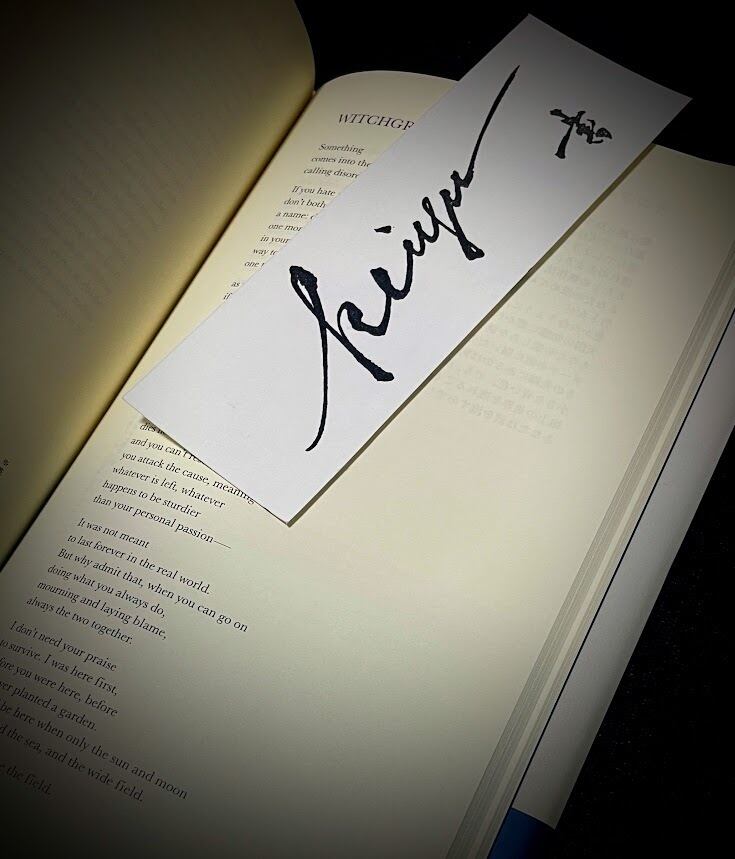 WITCHGR
Something
comes into the
calling disor
If you hate
don't both
a name:
one mor
in your
way to
one
as
if
dies
and you can't
you attack the cause, meaning
whatever is left, whatever
happens to be sturdier
than your personal passion—
It was not meant
to last forever in the real world.
But why admit that, when you can go on
doing what you always do,
mourning and laying blame,
always the two together.
I don't need your praise
to survive. I was here first,
fore you were here, before
ver planted a garden.
be here when only the sun and moon
d the sea, and the wide field.
the field.